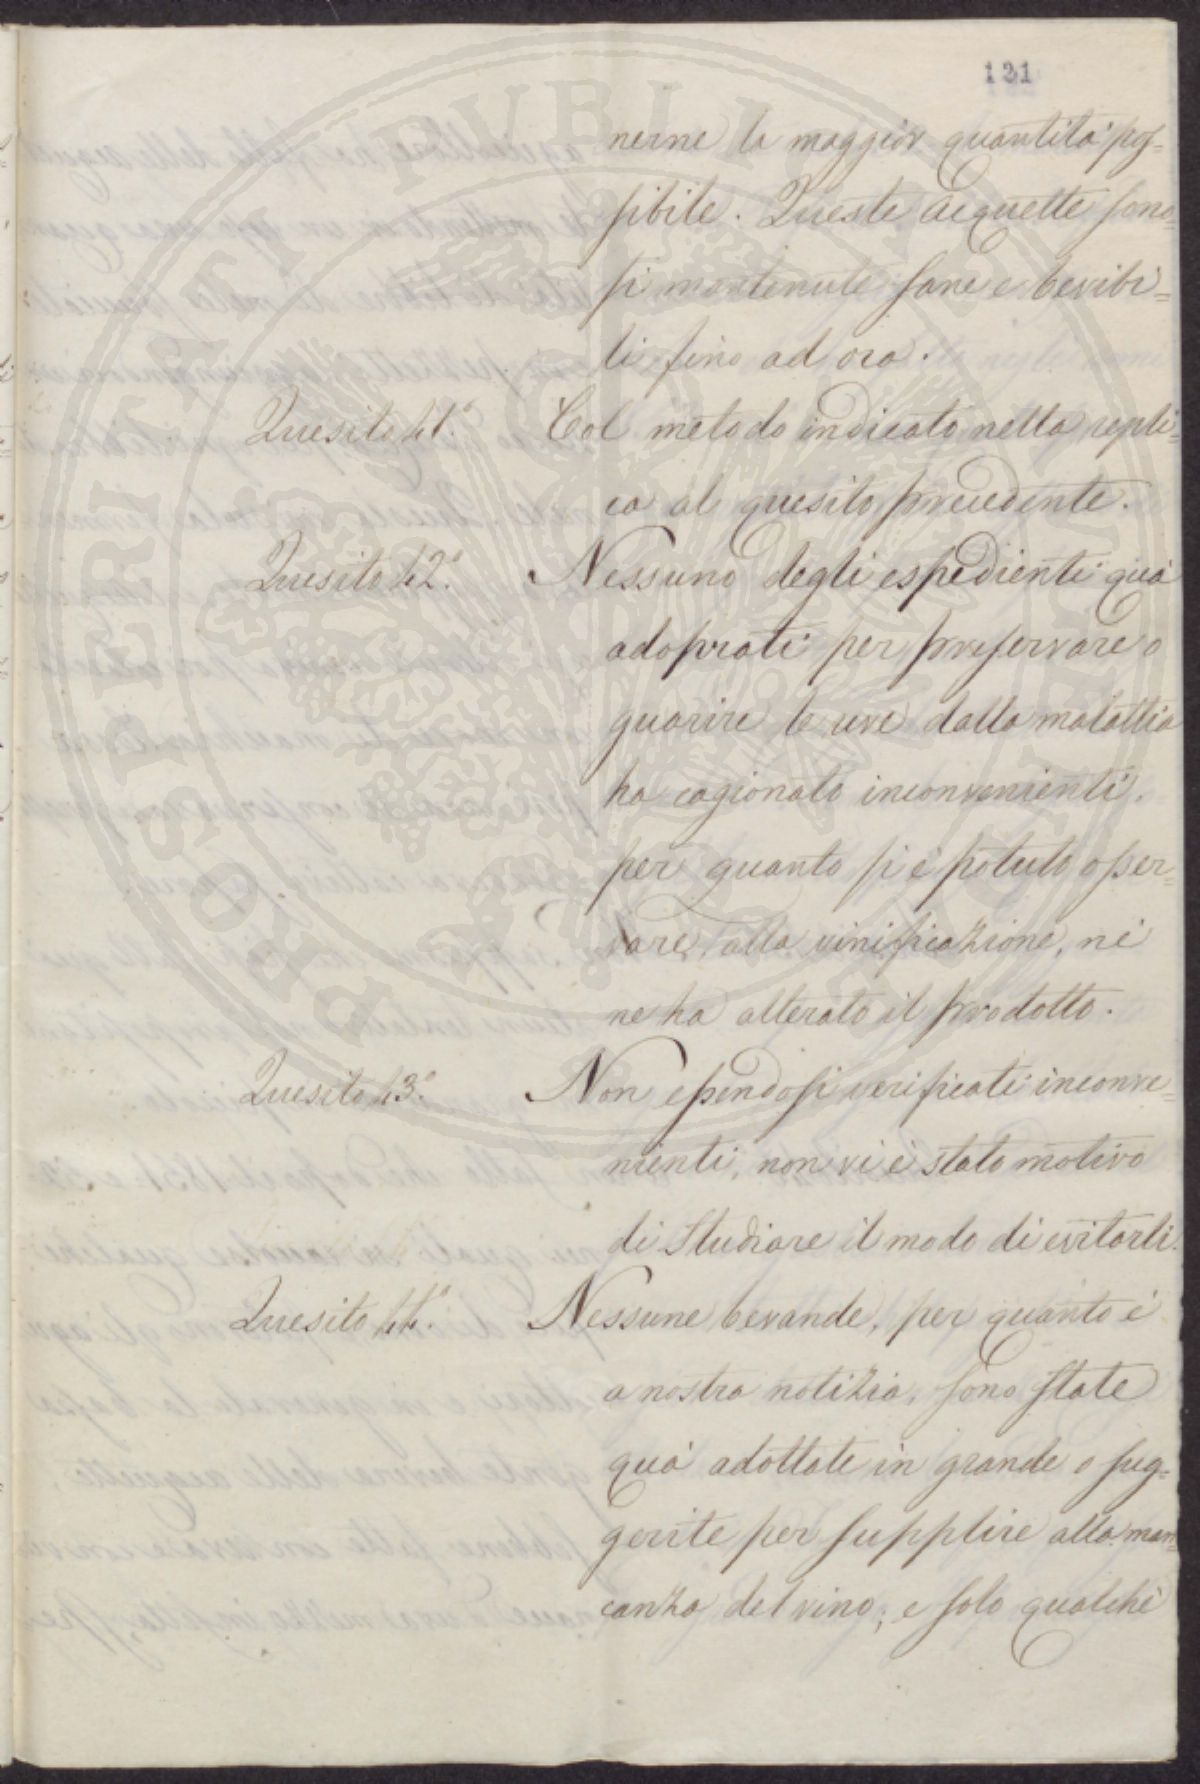 131
nerne la maggior quantità pos=
sibile. Queste acquette sono
si mantenute sane e bevibi=
li fino ad ora.
Quesito 41.° Col metodo indicato nella repli=
ca al quesito precedente.
Quesito 42.° Nessuno degli espedienti quà
adoprati per preservare o
guarire le uve dalla malattia
ha cagionato inconvenienti,
per quanto si è potuto osser=
vare, alla vinificazione, nè
ne ha alterato il prodotto.
Quesito 43.° Non essendosi verificati inconve=
nienti, non vi è stato motivo
di studiare il modo di evitarli.
Quesito 44.° Nessune bevande, per quanto è
a nostra notizia, sono state
quà adottate in grande o sug=
gerite per supplire alla man=
canza del vino; e solo qualche
PROSPERITATI PUBLICAE AUGENDAE